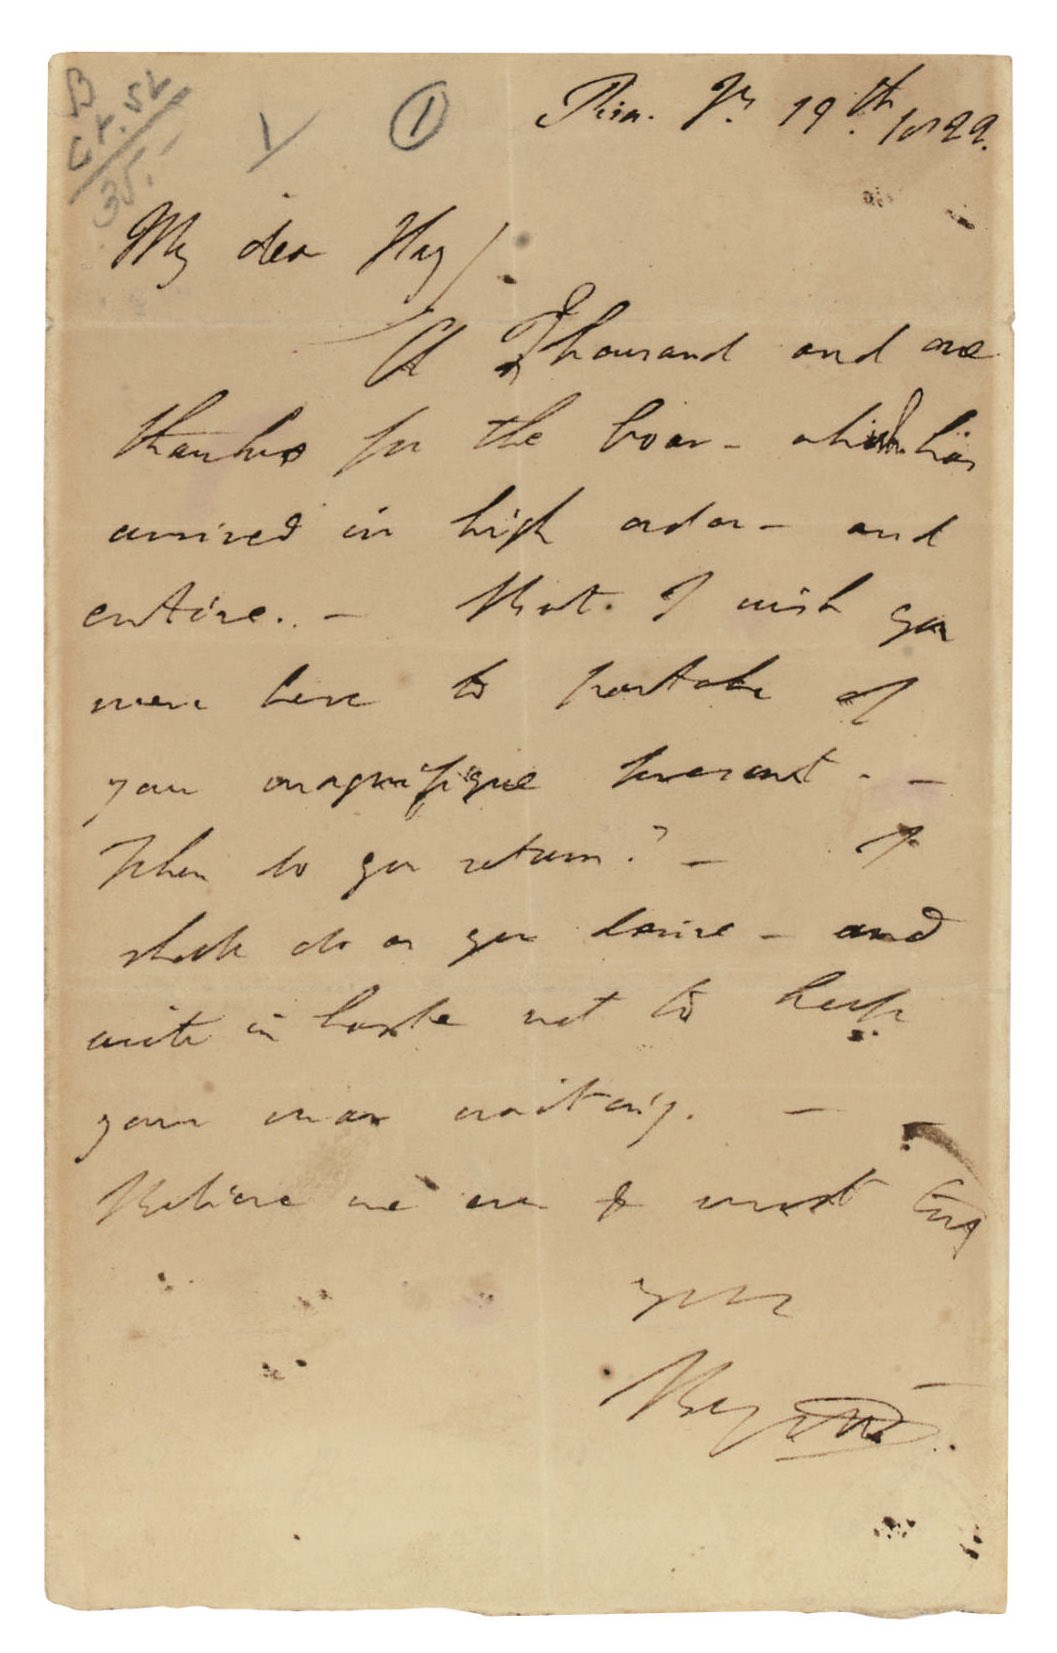 B
1
1
Pisa. Jy. 19th 1822.
My dear Hay/
A Thousand and one
thanks for the boar – which has
arrived in high order – and
entire. – But. I wish you
were here to partake of
your magnifique present. –
When do you return? – I
shall do as you desire – and
write in haste not to keep
your man waiting. –
Believe me ever & most truly
yours
Byron